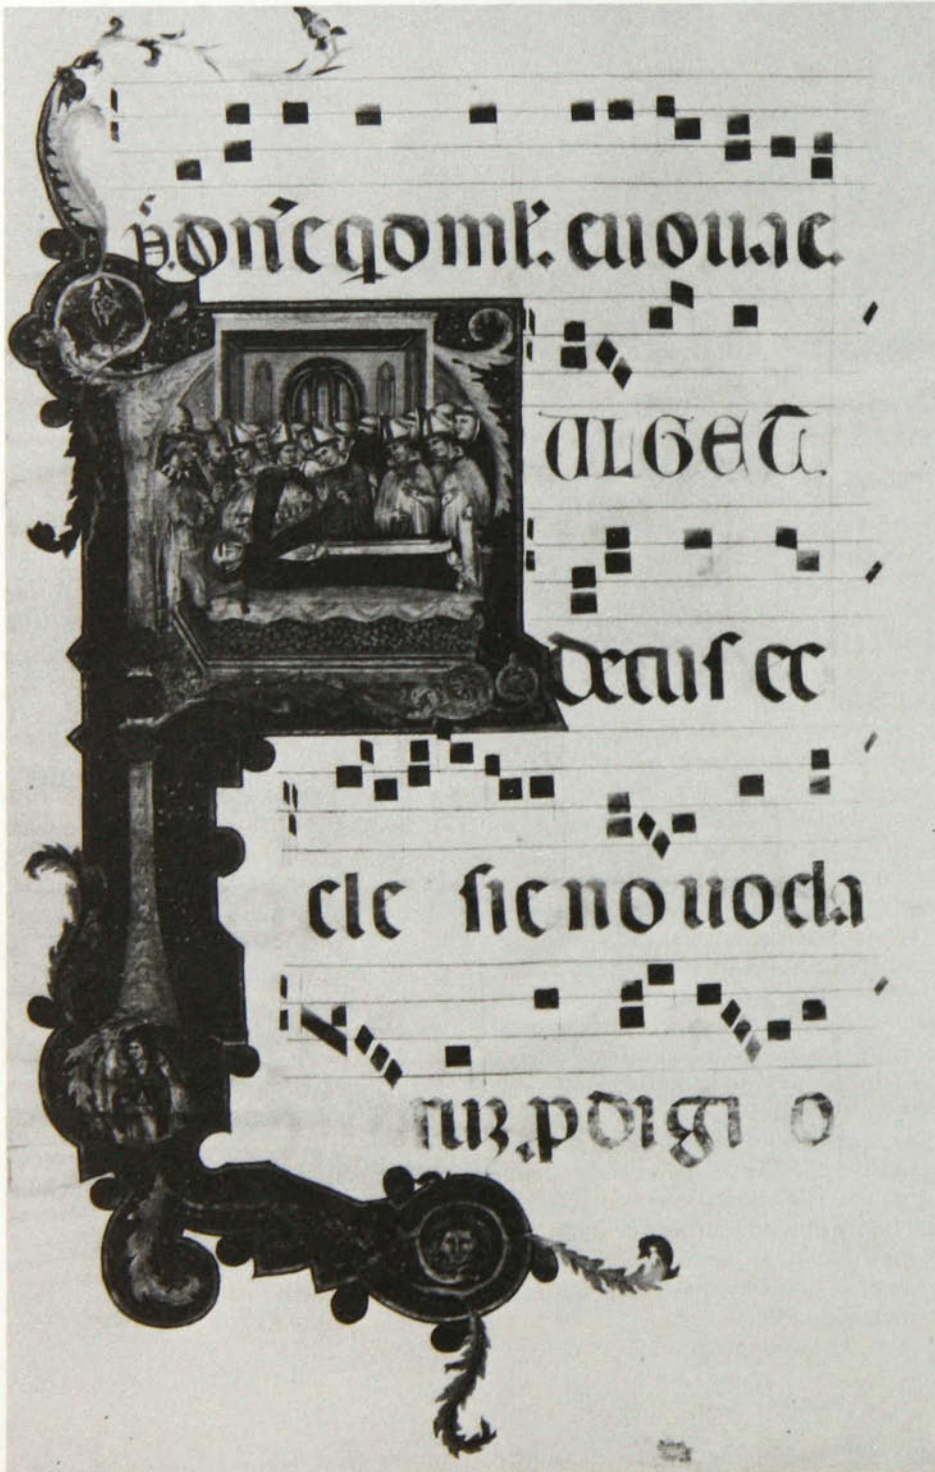 p̄s. dn̄e qd mlt̓. euouae
FULGET.
decus ec
cle sie no uo cla
ruz. ꝑdigi o